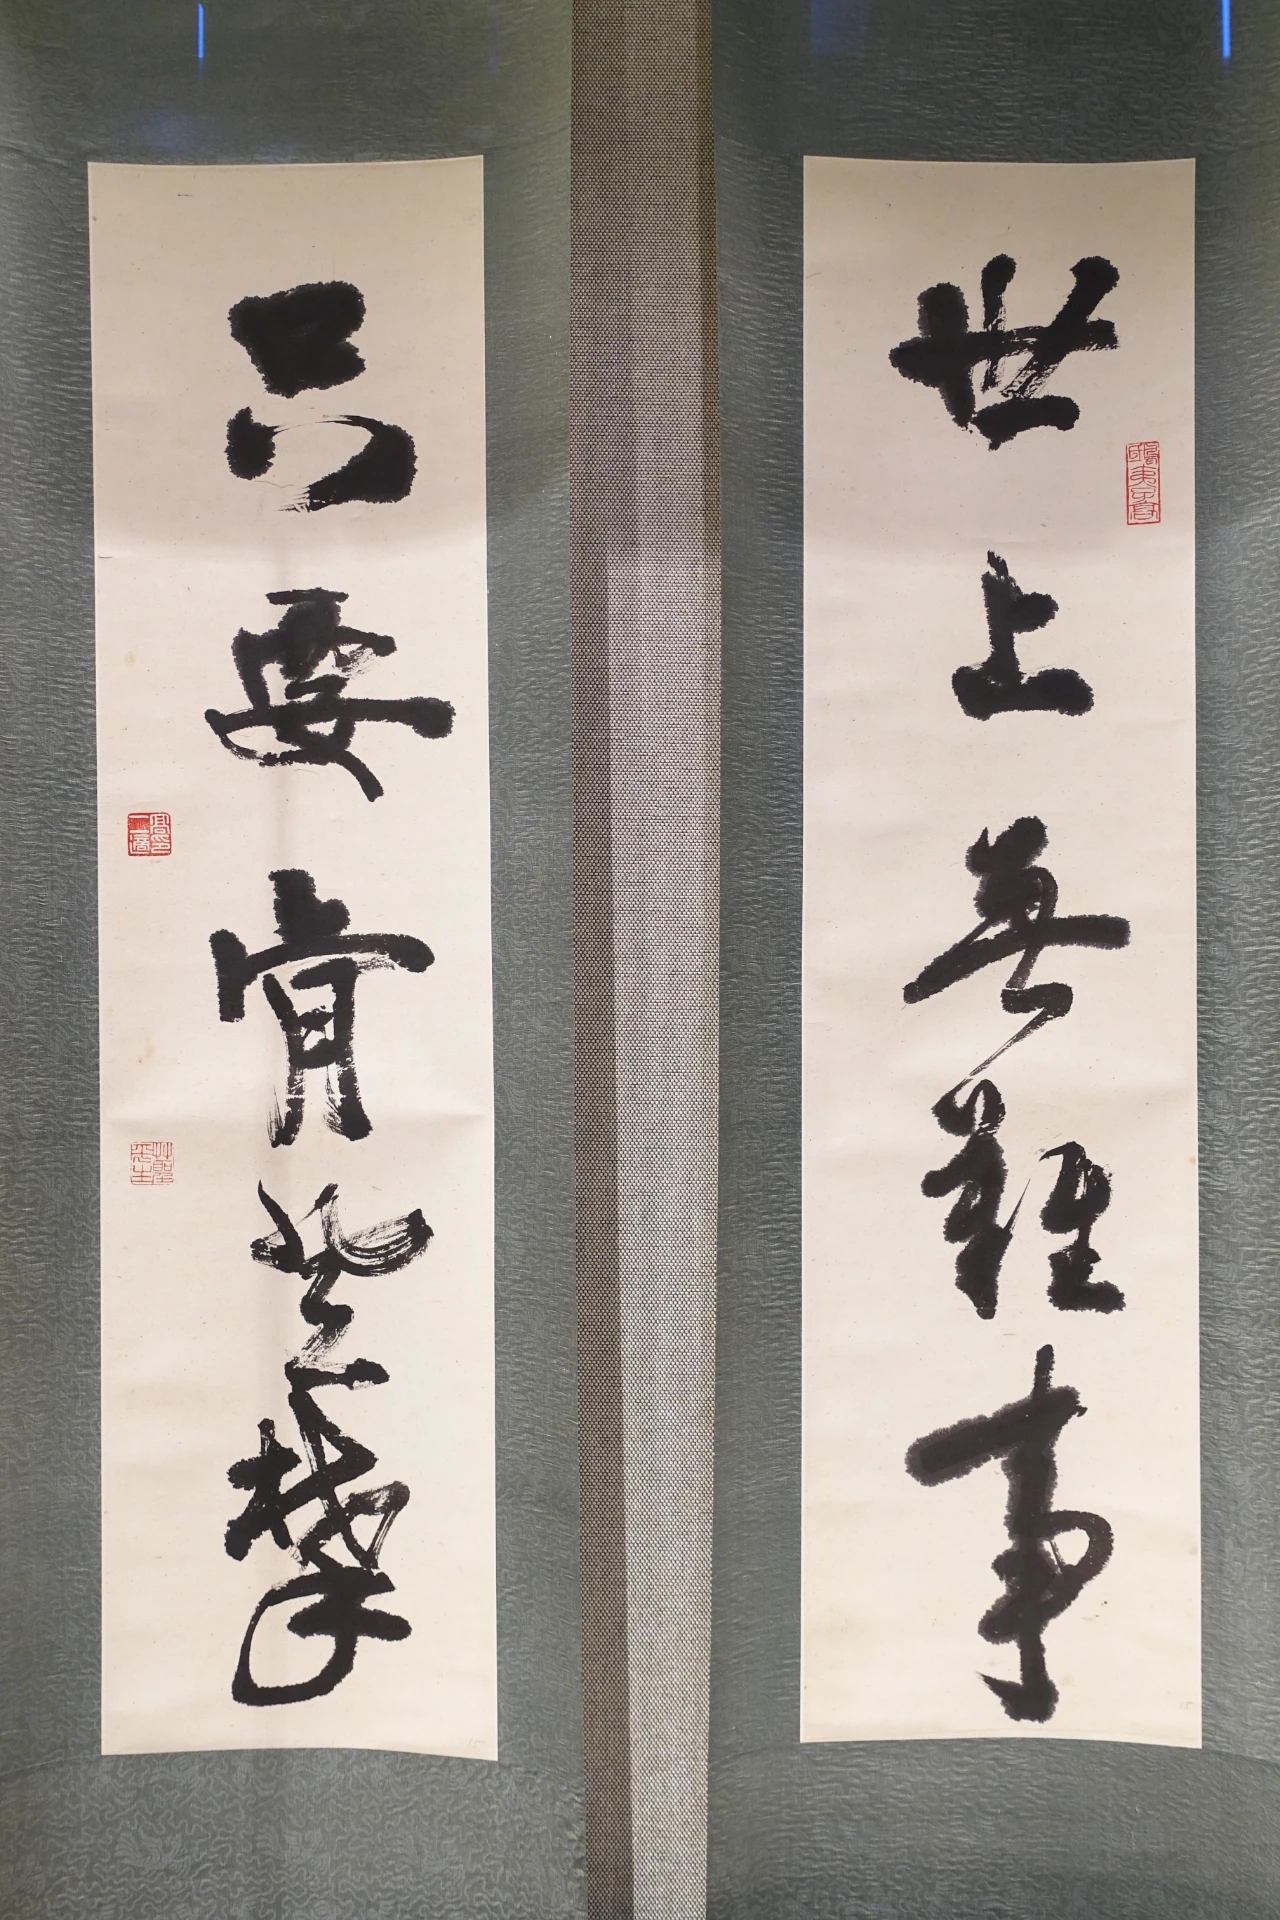 世上無難事
只要肯登攀